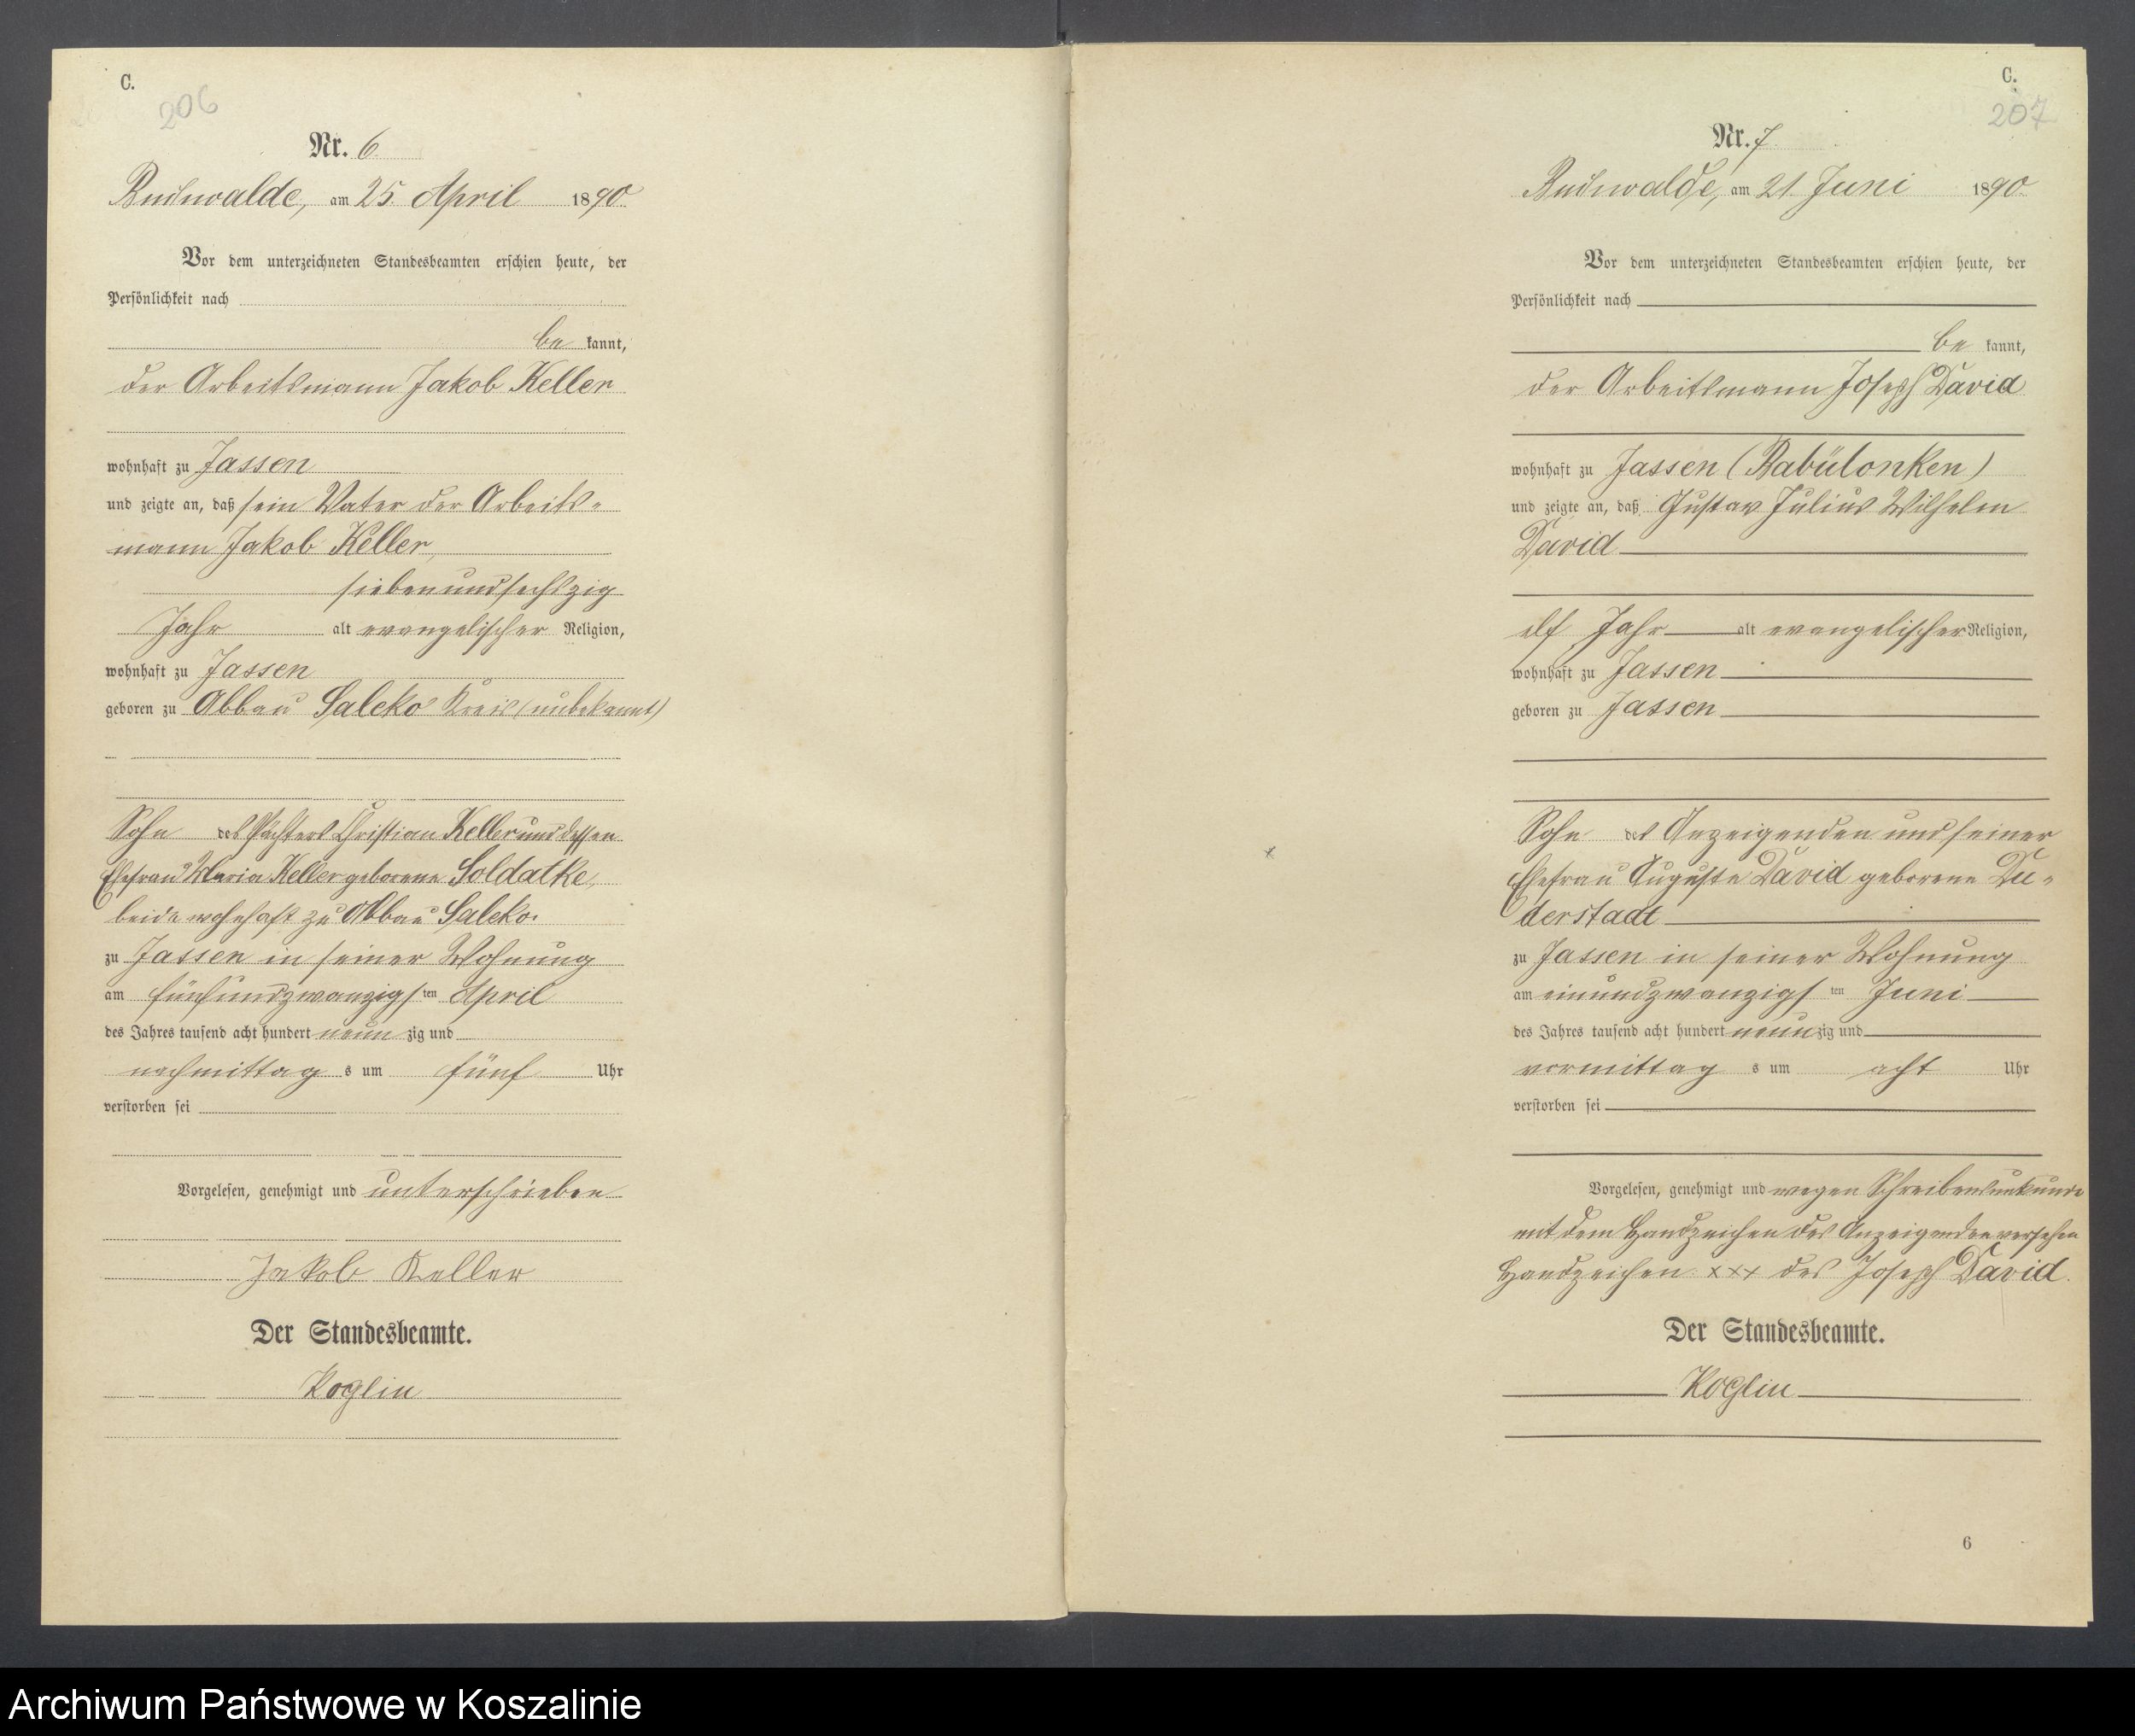 C.
206
Nr. 6
Buchwalde, am 25. April 1890.
Vor dem unterzeichneten Standesbeamten erschien heute, der
Persönlichkeit nach
be kannt,
der Arbeitsmann Jakob Keller
wohnhaft zu Jassen
und zeigte an, daß sein Vater der Arbeits-
mann Jakob Keller,
siebenundsechszig
Jahr alt evangelischer Religion,
wohnhaft zu Jassen
geboren zu Abbau Saleko Kreis (unbekannt)
Sohn des Pächters Christian Keller und dessen
Ehefrau Maria Keller geborene Soldatke,
beide wohnhaft zu Abbau Saleko.
zu Jassen in seiner Wohnung
am fünfundzwanzigsten April
des Jahres tausend acht hundert neun zig und
nachmittag s um fünf Uhr
verstorben sei
Vorgelesen, genehmigt und unterschrieben
Jakob Keller
Der Standesbeamte.
Koglin
C.
207
Nr. 7
Buchwalde, am 21. Juni 1890.
Vor dem unterzeichneten Standesbeamten erschien heute, der
Persönlichkeit nach
be kannt,
der Arbeitsmann Joseph David
wohnhaft zu Jassen (Babülonken)
und zeigte an, daß Gustav Julius Wilhelm
David
elf Jahr alt evangelischer Religion,
wohnhaft zu Jassen
geboren zu Jassen
Sohn des Anzeigenden und seiner
Ehefrau Auguste David geborene Du-
derstadt
zu Jassen in seiner Wohnung
am einundzwanzigsten Juni
des Jahres tausend acht hundert neun zig und
vormittag s um acht Uhr
verstorben sei
Vorgelesen, genehmigt und wegen Schreibensunkunde
mit dem Handzeichen des Anzeigenden versehen
Handzeichen xxx des Joseph David.
Der Standesbeamte.
Koglin
6
Archiwum Państwowe w Koszalinie